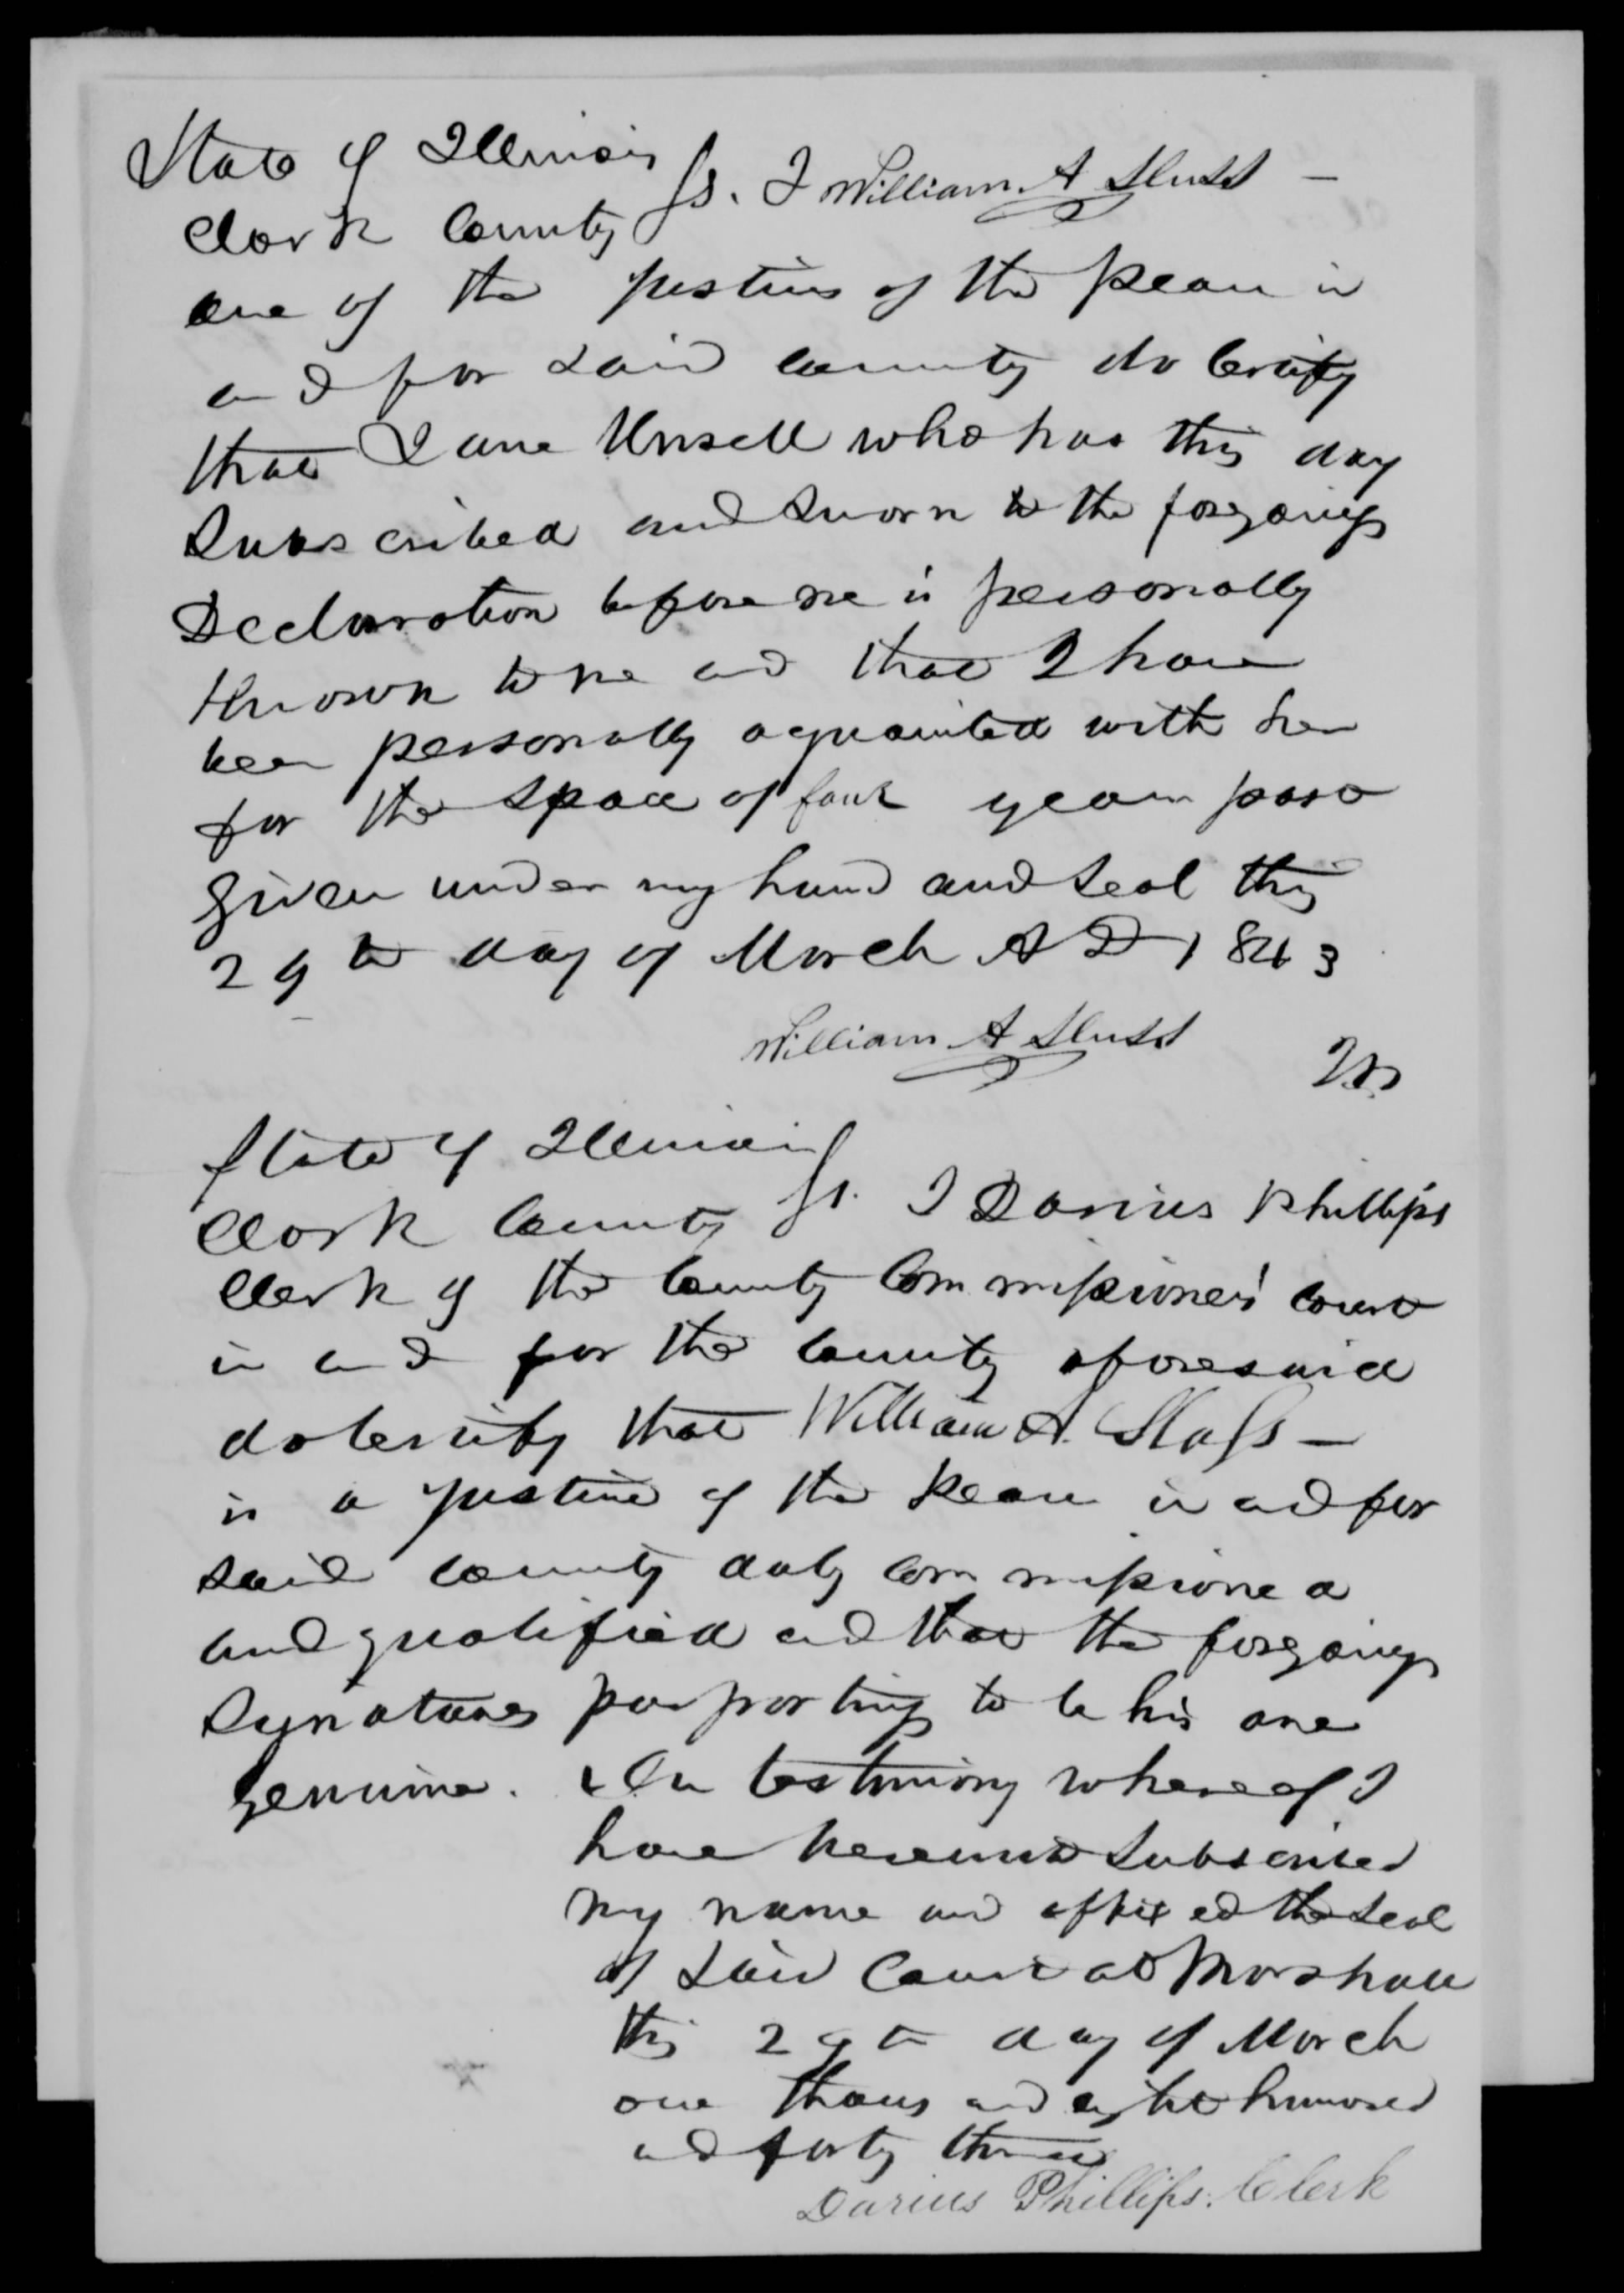 State of Illinois
Clark County ss. I William A Sluss —
one of the justices of the peace in
and for said county do certify
that Jane Unsell who has this day
Subscribed and sworn to the foregoing
Declaration before me is personally
Known to me and that I have
been personally aquainted with her
for the space of four years past
given under my hand and seal this
29th day of March A D 1843
William A Sluss
State of Illinois
Clark County ss. I Darius Phillips
Clerk of the County Commissioners' court
in and for the County aforesaid
do certify that William A. Sluss —
is a justice of the peace in and for
said county duly commissioned
and qualified and that the foregoing
Signatures purporting to be his are
genuine. In testimony whereof I
have hereunto subscribed
my name and affixed the seal
of said Court at Marshall
this 29th day of March
one thousand eight hundred
and forty three
Darius Phillips. Clerk